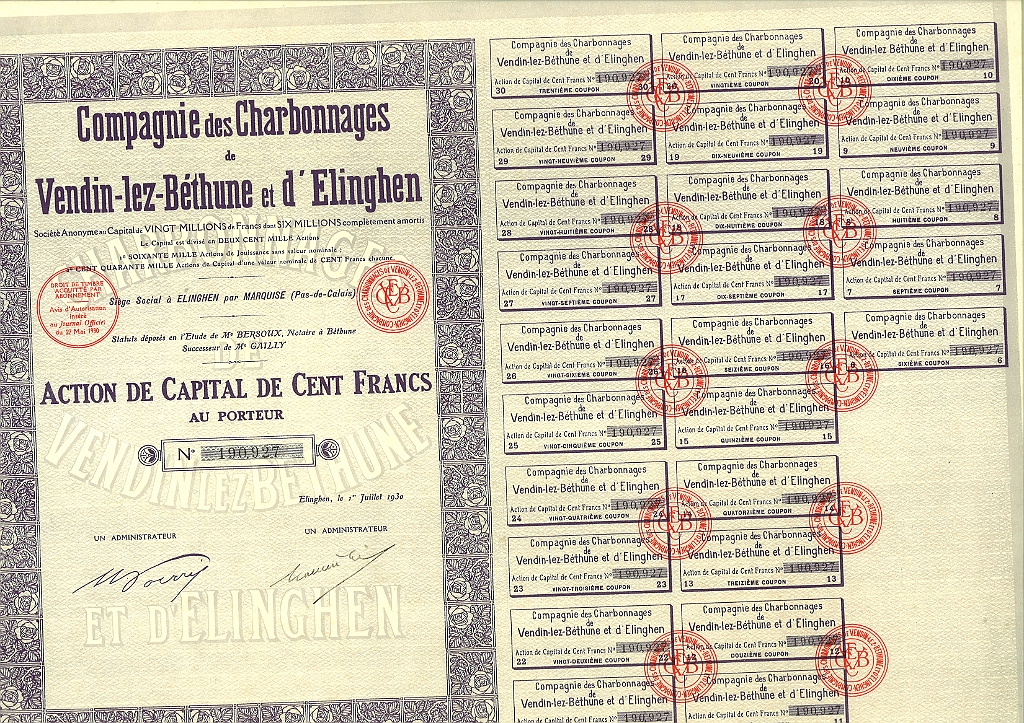 Compagnie des Charbonnages
de
Vendin-lez-Béthune et d'Elinghen
Société Anonyme au Capital de VINGT MILLIONS de Francs dont SIX MILLIONS complètement amortis
Le Capital est divisé en DEUX CENT MILLE Actions
1º SOIXANTE MILLE Actions de Jouissance sans valeur nominale;
2º CENT QUARANTE MILLE Actions de Capital d'une valeur nominale de CENT Francs chacune
DROIT DE TIMBRE
ACQUITTÉ PAR
ABONNEMENT
Avis d'Autorisation
inséré
au Journal Officiel
du 27 Mai 1930
Siège Social à ELINGHEN par MARQUISE (Pas-de-Calais)
Statuts déposés en l'Etude de Me BERSOUX, Notaire à Béthune
Successeur de Me GAILLY
ACTION DE CAPITAL DE CENT FRANCS
AU PORTEUR
No 190,927
VENDIN LEZ BETHUNE
ET D'ELINGHEN
Elinghen, le 1er Juillet 1930
UN ADMINISTRATEUR
UN ADMINISTRATEUR
Compagnie des Charbonnages
de
Vendin-lez-Béthune et d'Elinghen
Action de Capital de Cent Francs No 190,927
30 TRENTIÈME COUPON 30
Compagnie des Charbonnages
de
Vendin-lez-Béthune et d'Elinghen
Action de Capital de Cent Francs No 190,927
29 VINGT-NEUVIÈME COUPON 29
Compagnie des Charbonnages
de
Vendin-lez-Béthune et d'Elinghen
Action de Capital de Cent Francs No 190,927
28 VINGT-HUITIÈME COUPON 28
Compagnie des Charbonnages
de
Vendin-lez-Béthune et d'Elinghen
Action de Capital de Cent Francs No 190,927
27 VINGT-SEPTIÈME COUPON 27
Compagnie des Charbonnages
de
Vendin-lez-Béthune et d'Elinghen
Action de Capital de Cent Francs No 190,927
26 VINGT-SIXIÈME COUPON 26
Compagnie des Charbonnages
de
Vendin-lez-Béthune et d'Elinghen
Action de Capital de Cent Francs No 190,927
25 VINGT-CINQUIÈME COUPON 25
Compagnie des Charbonnages
de
Vendin-lez-Béthune et d'Elinghen
Action de Capital de Cent Francs No 190,927
24 VINGT-QUATRIÈME COUPON 24
Compagnie des Charbonnages
de
Vendin-lez-Béthune et d'Elinghen
Action de Capital de Cent Francs No 190,927
23 VINGT-TROISIÈME COUPON 23
Compagnie des Charbonnages
de
Vendin-lez-Béthune et d'Elinghen
Action de Capital de Cent Francs No 190,927
22 VINGT-DEUXIÈME COUPON 22
Compagnie des Charbonnages
de
Vendin-lez-Béthune et d'Elinghen
Action de Capital de Cent Francs No 190,927
Compagnie des Charbonnages
de
Vendin-lez-Béthune et d'Elinghen
Action de Capital de Cent Francs No 190,927
20 VINGTIÈME COUPON 20
Compagnie des Charbonnages
de
Vendin-lez-Béthune et d'Elinghen
Action de Capital de Cent Francs No 190,927
19 DIX-NEUVIÈME COUPON 19
Compagnie des Charbonnages
de
Vendin-lez-Béthune et d'Elinghen
Action de Capital de Cent Francs No 190,927
18 DIX-HUITIÈME COUPON 18
Compagnie des Charbonnages
de
Vendin-lez-Béthune et d'Elinghen
Action de Capital de Cent Francs No 190,927
17 DIX-SEPTIÈME COUPON 17
Compagnie des Charbonnages
de
Vendin-lez-Béthune et d'Elinghen
Action de Capital de Cent Francs No 190,927
16 SEIZIÈME COUPON 16
Compagnie des Charbonnages
de
Vendin-lez-Béthune et d'Elinghen
Action de Capital de Cent Francs No 190,927
15 QUINZIÈME COUPON 15
Compagnie des Charbonnages
de
Vendin-lez-Béthune et d'Elinghen
Action de Capital de Cent Francs No 190,927
14 QUATORZIÈME COUPON 14
Compagnie des Charbonnages
de
Vendin-lez-Béthune et d'Elinghen
Action de Capital de Cent Francs No 190,927
13 TREIZIÈME COUPON 13
Compagnie des Charbonnages
de
Vendin-lez-Béthune et d'Elinghen
Action de Capital de Cent Francs No 190,927
12 DOUZIÈME COUPON 12
Compagnie des Charbonnages
de
Vendin-lez-Béthune et d'Elinghen
Action de Capital de Cent Francs No 190,927
11
Compagnie des Charbonnages
de
Vendin-lez-Béthune et d'Elinghen
Action de Capital de Cent Francs No 190,927
10 DIXIÈME COUPON 10
Compagnie des Charbonnages
de
Vendin-lez-Béthune et d'Elinghen
Action de Capital de Cent Francs No 190,927
9 NEUVIÈME COUPON 9
Compagnie des Charbonnages
de
Vendin-lez-Béthune et d'Elinghen
Action de Capital de Cent Francs No 190,927
8 HUITIÈME COUPON 8
Compagnie des Charbonnages
de
Vendin-lez-Béthune et d'Elinghen
Action de Capital de Cent Francs No 190,927
7 SEPTIÈME COUPON 7
Compagnie des Charbonnages
de
Vendin-lez-Béthune et d'Elinghen
Action de Capital de Cent Francs No 190,927
6 SIXIÈME COUPON 6